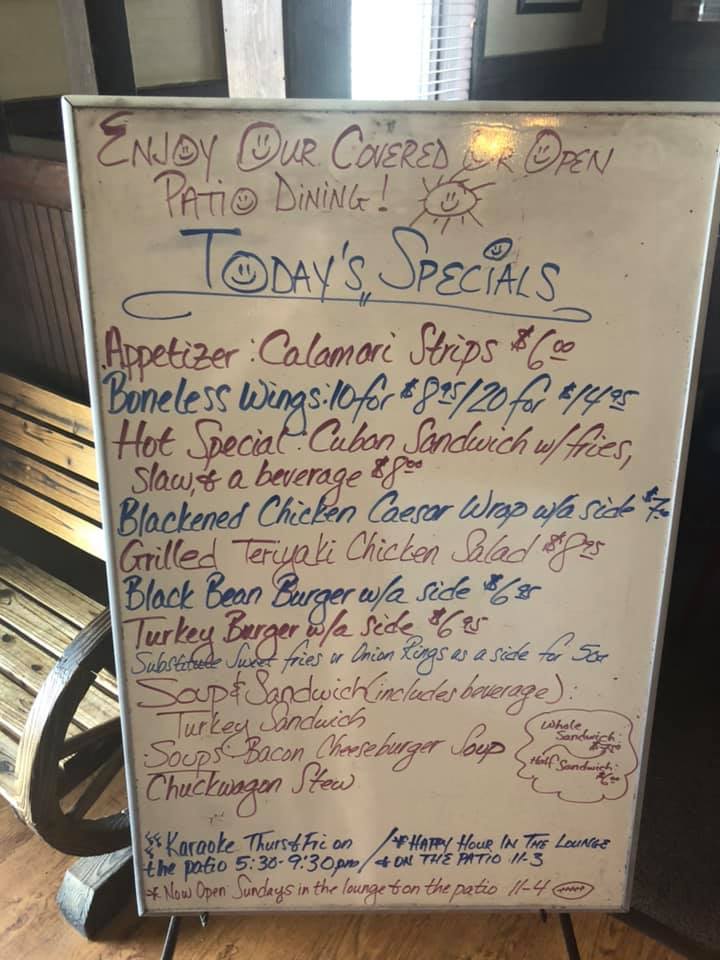 ENJOY OUR COVERED OR OPEN
PATIO DINING!
TODAY'S SPECIALS
Appetizer: Calamari Strips $6.00
Boneless Wings: 10 for $8.95/20 for $14.95
Hot Special: Cuban Sandwich w/fries,
slaw, & a beverage $8.00
Blackened Chicken Caesar Wrap w/a side
Grilled Teriyaki Chicken Salad $8.95
Black Bean Burger w/a side $6.95
Turkey Burger w/a side $6.95
Substitute Sweet fries or Onion Rings as a side for 50¢
Soup & Sandwich (includes beverage):
Turkey Sandwich
Soups: Bacon Cheeseburger Soup
Chuckwagon Stew
Whole
Sandwich:
Half Sandwich:
$6.00
Karaoke Thurs & Fri on
the patio 5:30-9:30pm
* HAPPY HOUR IN THE LOUNGE
& ON THE PATIO 11-3
* Now Open Sundays in the lounge & on the patio 11-4